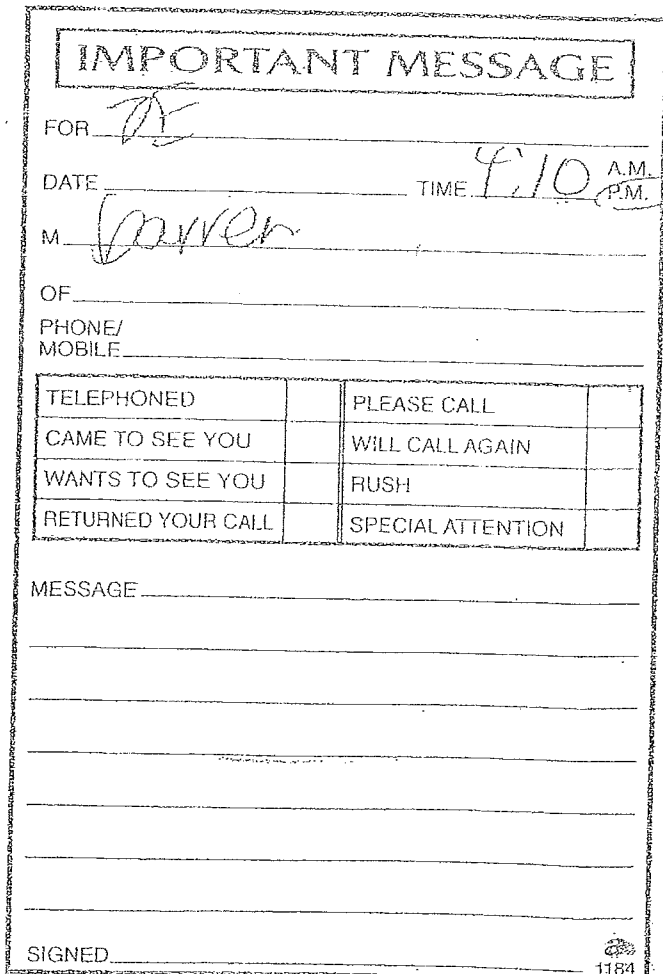 IMPORTANT MESSAGE
FOR JE
DATE TIME 4:10 A.M.
P.M.
M Darren
OF
PHONE/
MOBILE
TELEPHONED PLEASE CALL
CAME TO SEE YOU WILL CALL AGAIN
WANTS TO SEE YOU RUSH
RETURNED YOUR CALL SPECIAL ATTENTION
MESSAGE
SIGNED
1184